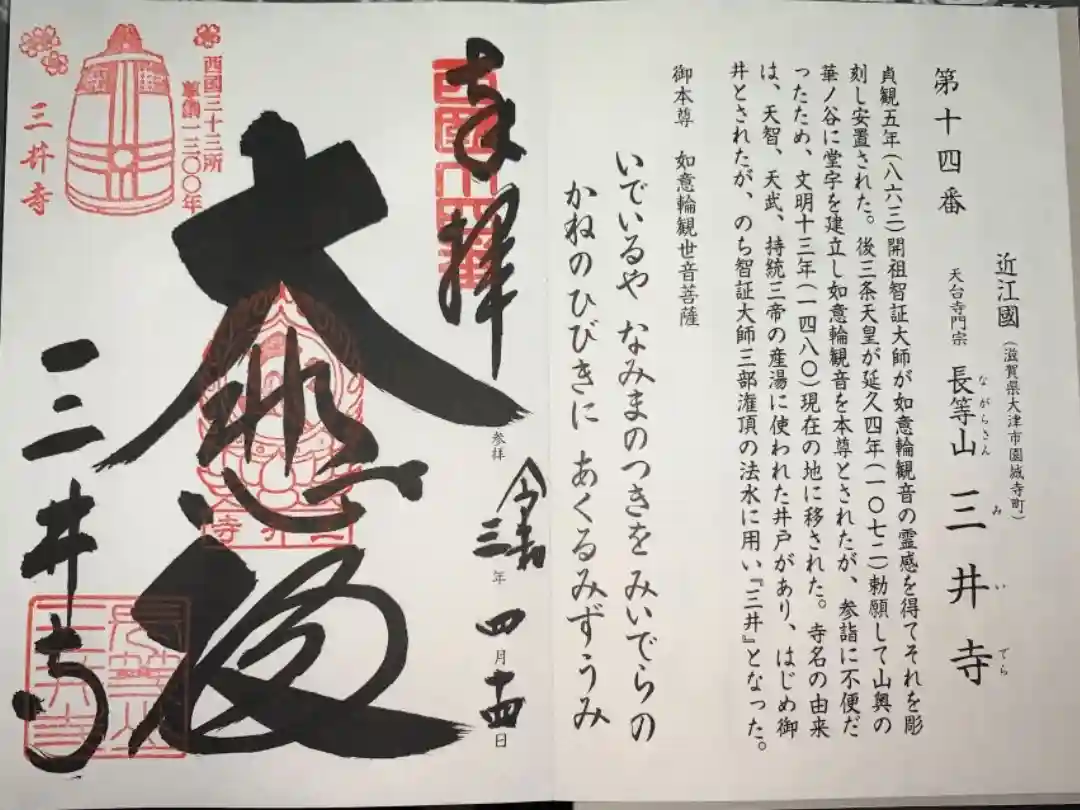 第十四番
近江國(滋賀県大津市園城寺町)
天台寺門宗 長等山 三井寺
ながらさん みいでら
貞観五年(八六三)開祖智証大師が如意輪観音の霊感を得てそれを彫
刻し安置された。後三条天皇が延久四年(一〇七二)勅願して山奥の
華ノ谷に堂宇を建立し如意輪観音を本尊とされたが、参詣に不便だ
ったため、文明十三年(一四八〇)現在の地に移された。寺名の由来
は、天智、天武、持統三帝の産湯に使われた井戸があり、はじめ御
井とされたが、のち智証大師三部潅頂の法水に用い『三井』となった。
御本尊 如意輪観世音菩薩
いでいるや なみまのつきを みいでらの
かねのひびきに あくるみずうみ
奉拝
参拝 令和三年四月十四日
大悲殿
三井寺
西国三十三所
草創一三〇〇年
三井寺
三井寺